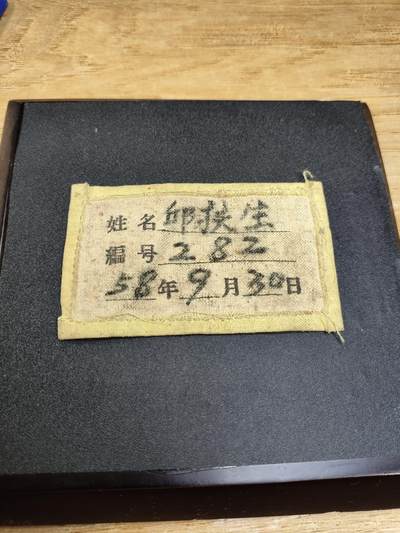 姓名 邱扶生
編号 282
58年9月30日